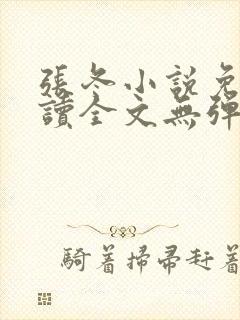 張冬小說免
讀全文無彈
騎着掃帚赶着